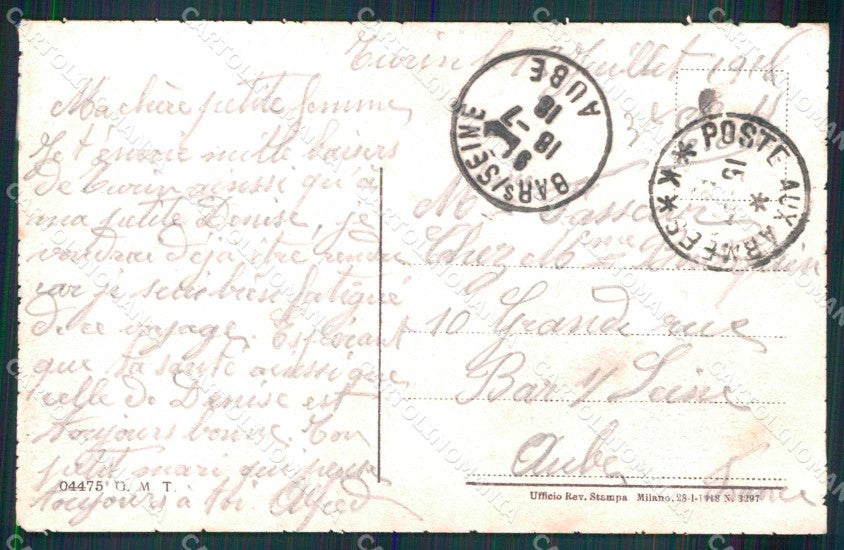 Turin le Juillet 1918
Ma chère petite femme
Je t'envoie mille baisers
de Turin ainessi qu'à
ma petite Denise, je
voudrai déja être rendu
car je suis bien fatigué
de ce voyage. Espérant
que ta santé ainessi que
celle de Denise est
toujours bonne. Ton
petit mari qui pense
toujours à toi Alfred
BAR S/ SEINE
18 -7
18
AUBE
POSTE AUX ARMÉES
15
Chez Mme
10 Grande rue
Bar s/ Seine
Aube
France
04475 G. M. T.
Ufficio Rev. Stampa Milano, 28-1-1918 N. 3297
CARTOLINOMANIA